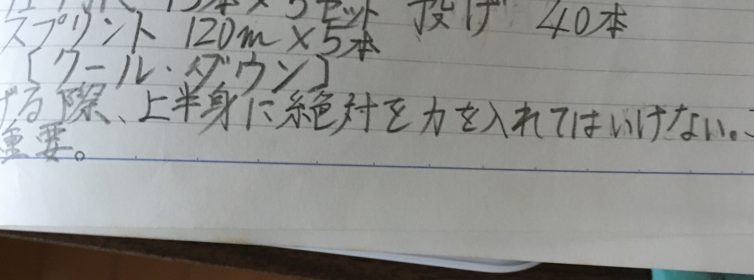 15本×5セット 投げ 40本
スプリント 120m×5本
[クール・ダウン]
げる際、上半身に絶対を力を入れてはいけない。
重要。